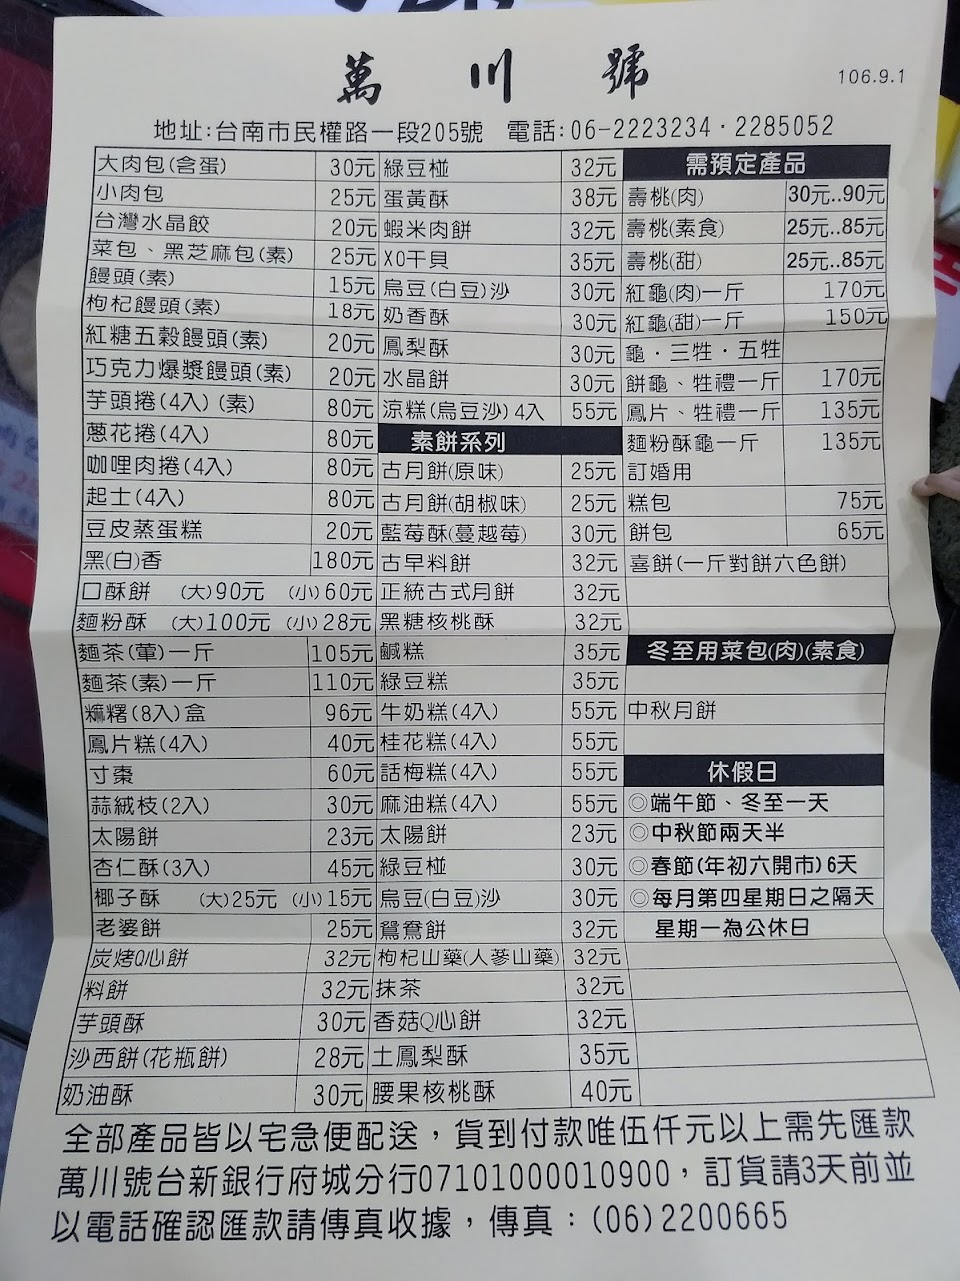 萬川號
106.9.1
地址:台南市民權路一段205號 電話:06-2223234·2285052
大肉包(含蛋) 30元 綠豆椪 32元 需預定產品
小肉包 25元 蛋黃酥 38元 壽桃(肉) 30元..90元
台灣水晶餃 20元 蝦米肉餅 32元 壽桃(素食) 25元..85元
菜包、黑芝麻包(素) 25元 XO干貝 35元 壽桃(甜) 25元..85元
饅頭(素) 15元 烏豆(白豆)沙 30元 紅龜(肉)一斤 170元
枸杞饅頭(素) 18元 奶香酥 30元 紅龜(甜)一斤 150元
紅糖五穀饅頭(素) 20元 鳳梨酥 30元 龜·三牲·五牲
巧克力爆漿饅頭(素) 20元 水晶餅 30元 餅龜、牲禮一斤 170元
芋頭捲(4入)(素) 80元 涼糕(烏豆沙)4入 55元 鳳片、牲禮一斤 135元
蔥花捲(4入) 80元 素餅系列 麵粉酥龜一斤 135元
咖哩肉捲(4入) 80元 古月餅(原味) 25元 訂婚用
起士(4入) 80元 古月餅(胡椒味) 25元 糕包 75元
豆皮蒸蛋糕 20元 藍莓酥(蔓越莓) 30元 餅包 65元
黑(白)香 180元 古早料餅 32元 喜餅(一斤對餅六色餅)
口酥餅 (大)90元 (小)60元 正統古式月餅 32元
麵粉酥 (大)100元 (小)28元 黑糖核桃酥 32元
麵茶(葷)一斤 105元 鹹糕 35元 冬至用菜包(肉)(素食)
麵茶(素)一斤 110元 綠豆糕 35元
麻糬(8入)盒 96元 牛奶糕(4入) 55元 中秋月餅
鳳片糕(4入) 40元 桂花糕(4入) 55元
寸棗 60元 話梅糕(4入) 55元 休假日
蒜絨枝(2入) 30元 麻油糕(4入) 55元 ◎端午節、冬至一天
太陽餅 23元 太陽餅 23元 ◎中秋節兩天半
杏仁酥(3入) 45元 綠豆椪 30元 ◎春節(年初六開市)6天
椰子酥 (大)25元 (小)15元 烏豆(白豆)沙 30元 ◎每月第四星期日之隔天
老婆餅 25元 鴛鴦餅 32元 星期一為公休日
炭烤Q心餅 32元 枸杞山藥(人蔘山藥) 32元
料餅 32元 抹茶 32元
芋頭酥 30元 香菇Q心餅 32元
沙西餅(花瓶餅) 28元 土鳳梨酥 35元
奶油酥 30元 腰果核桃酥 40元
全部產品皆以宅急便配送，貨到付款唯伍仟元以上需先匯款
萬川號台新銀行府城分行07101000010900，訂貨請3天前並
以電話確認匯款請傳真收據，傳真：(06)2200665